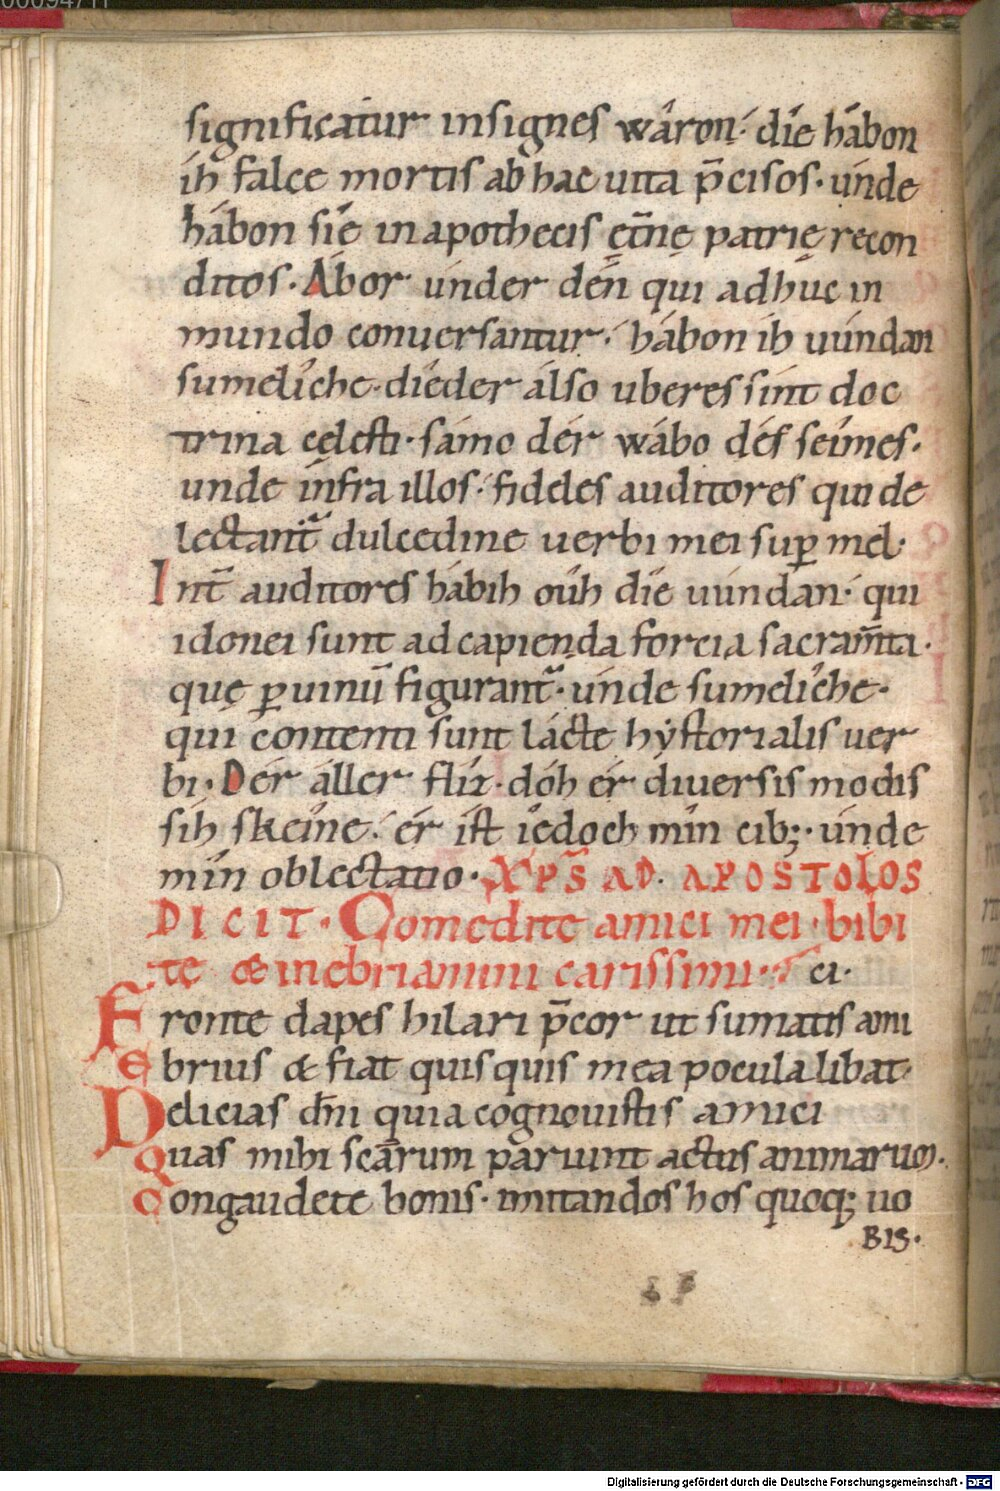 significatur insignes wâron· dîe hábon
ih falce mortis ab hac uita p̄cisos· únde
hábon síe in apothecis ęt̄nę patrię recon
ditos· Ábor únder dén qui adhuc in
mundo conuersantur· hábon ih uúndan
sumelîche· dîeder álso uberes sint doc
trina cęlesti· sámo dér wábo dés seímes·
unde infra illos· fideles auditores qui de
lectant᷑ dulcedine uerbi mei sup̱ mel·
Int̄ auditores hábih oûh dîe uúndan· qui
idonei sunt ad capienda forcia sacram̄ta·
quę p̱ uinū figurant᷑· únde sumelîche·
qui contenti sunt lácte hẏstorialis uer
bi· Dér áller flîz· dóh ér diuersis modis
síh skeíne· ér íst îedoch mín cib;· únde
mín oblectatio· XP̄S AD APOSTOLOS
DICIT· Comedite amici mei· bibi
te & inebriamini carissimi· ci·
Fronte dapes hilari p̄cor ut sumatis ami
Ebrius & fiat quisquis mea pocula libat·
Delicias dn̄i quia cognouistis amici
Quas mihi scārum pariunt actus animarum·
Congaudete bonis· imitandos hos quoq; uo
BIS·
Digitalisierung gefördert durch die Deutsche Forschungsgemeinschaft - DFG